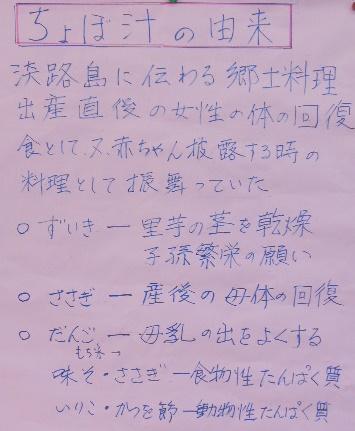 ちょぼ汁の由来
淡路島に伝わる郷土料理
出産直後の女性の体の回復
食として、又、赤ちゃん披露する時の
料理として振舞っていた
○ ずいき ー 里芋の茎を乾燥
子孫繁栄の願い
○ ささぎ ー 産後の母体の回復
○ だんご ー 母乳の出をよくする
もち米
味そ・ささぎ ー食物性たんぱく質
いりこ・かつを節 ー動物性たんぱく質